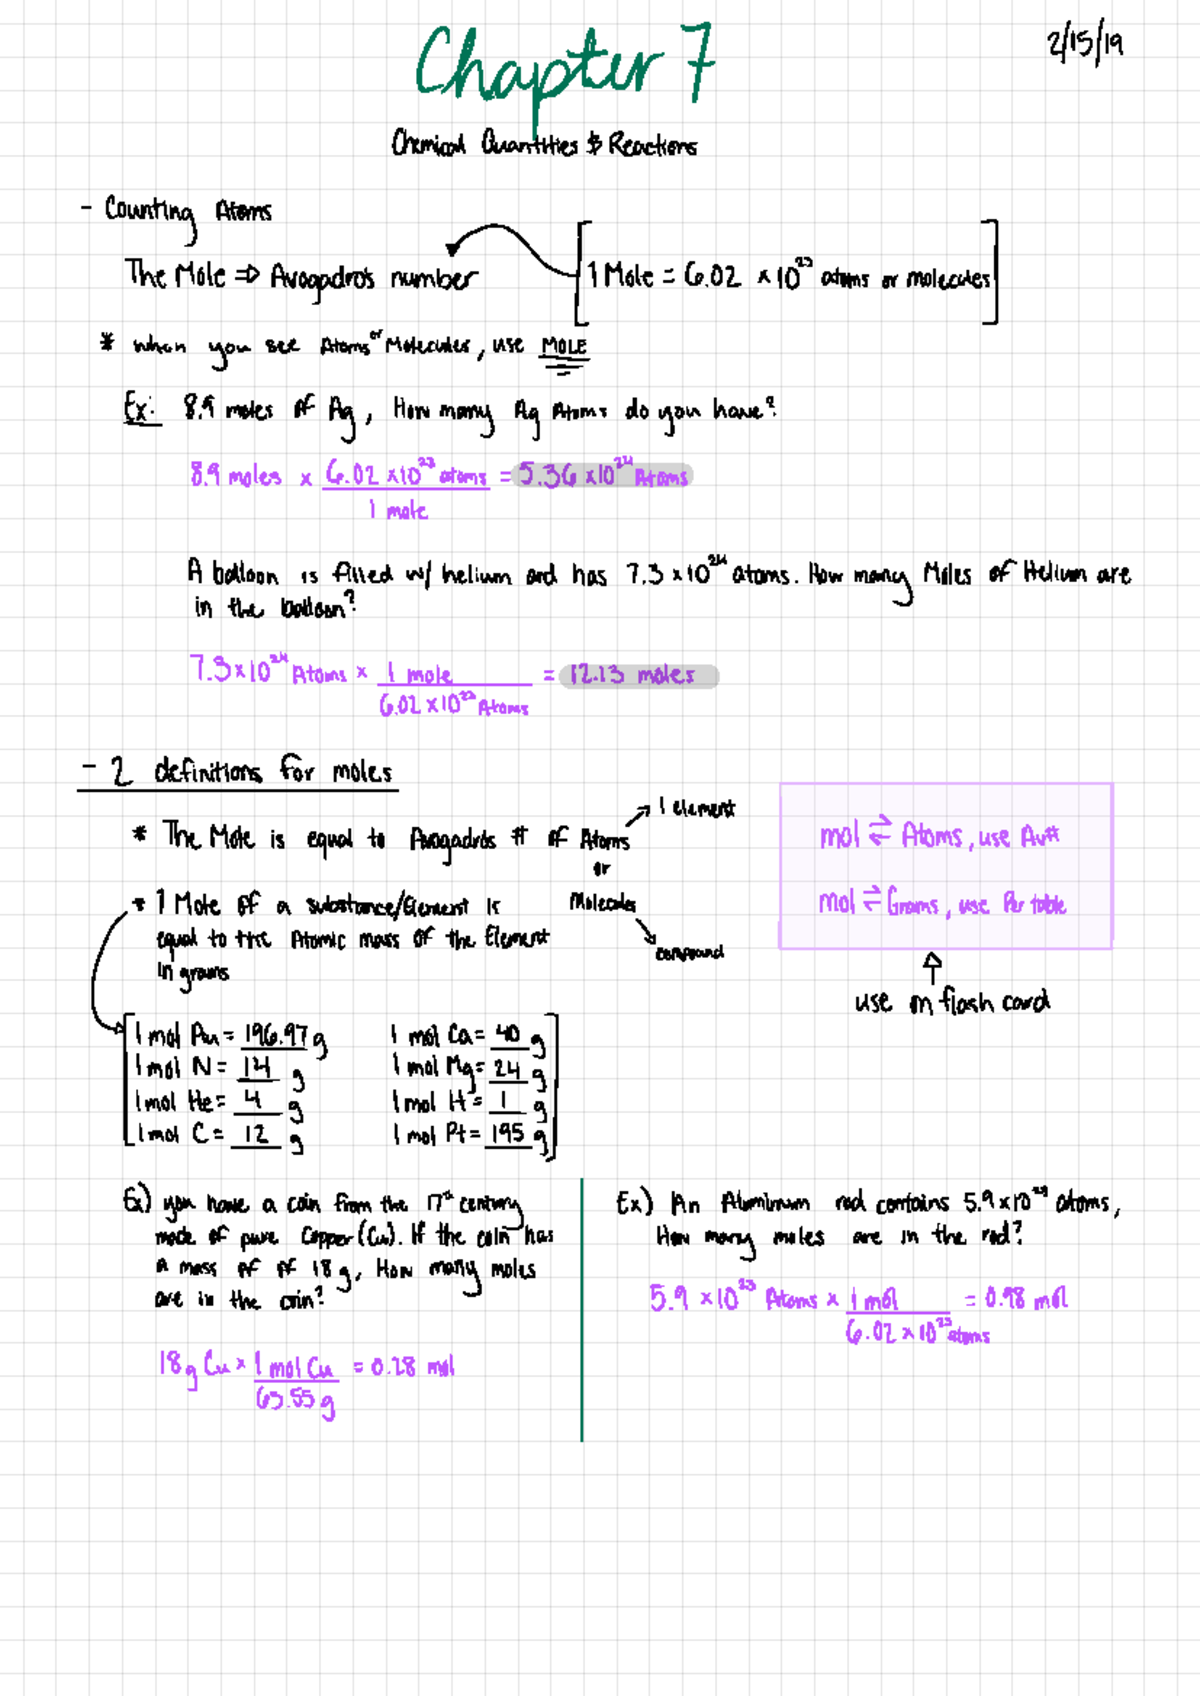 Chapter 7
2/15/19
Chemical Quantities & Reactions
- Counting Atoms
The Mole ⇒ Avogadro's number
[1 Mole = 6.02 x10²³ atoms or molecules]
* when you see Atoms or Molecules, use MOLE
Ex: 8.9 moles of Ag, How many Ag Atoms do you have?
8.9 moles x 6.02 x10²³ atoms = 5.36 x10²⁴ Atoms
1 mole
A balloon is filled w/ helium and has 7.3 x10²⁴ atoms. How many Moles of Helium are
in the balloon?
7.3x10²⁴ Atoms x 1 mole = 12.13 moles
6.02 x10²³ Atoms
- 2 definitions for moles
* The Mole is equal to Avogadro's # of Atoms
→ 1 element
or
Molecules
→ compound
* 1 Mole of a substance/Element is
equal to the Atomic mass of the Element
in grams
mol ⇌ Atoms, use Av#
mol ⇌ Grams, use Per table
use on flash card
1 mol Au = 196.97 g 1 mol Ca = 40 g
1 mol N = 14 g 1 mol Mg = 24 g
1 mol He = 4 g 1 mol H = 1 g
1 mol C = 12 g 1 mol Pt = 195 g
Ex) you have a coin from the 17th century
made of pure Copper (Cu). If the coin has
A mass of of 18 g, How many moles
are in the coin?
18g Cu x 1 mol Cu = 0.28 mol
63.55 g
Ex) An Aluminum rod contains 5.9x10²³ atoms,
How many moles are in the rod?
5.9 x10²³ Atoms x 1 mol = 0.98 mol
6.02 x10²³ atoms